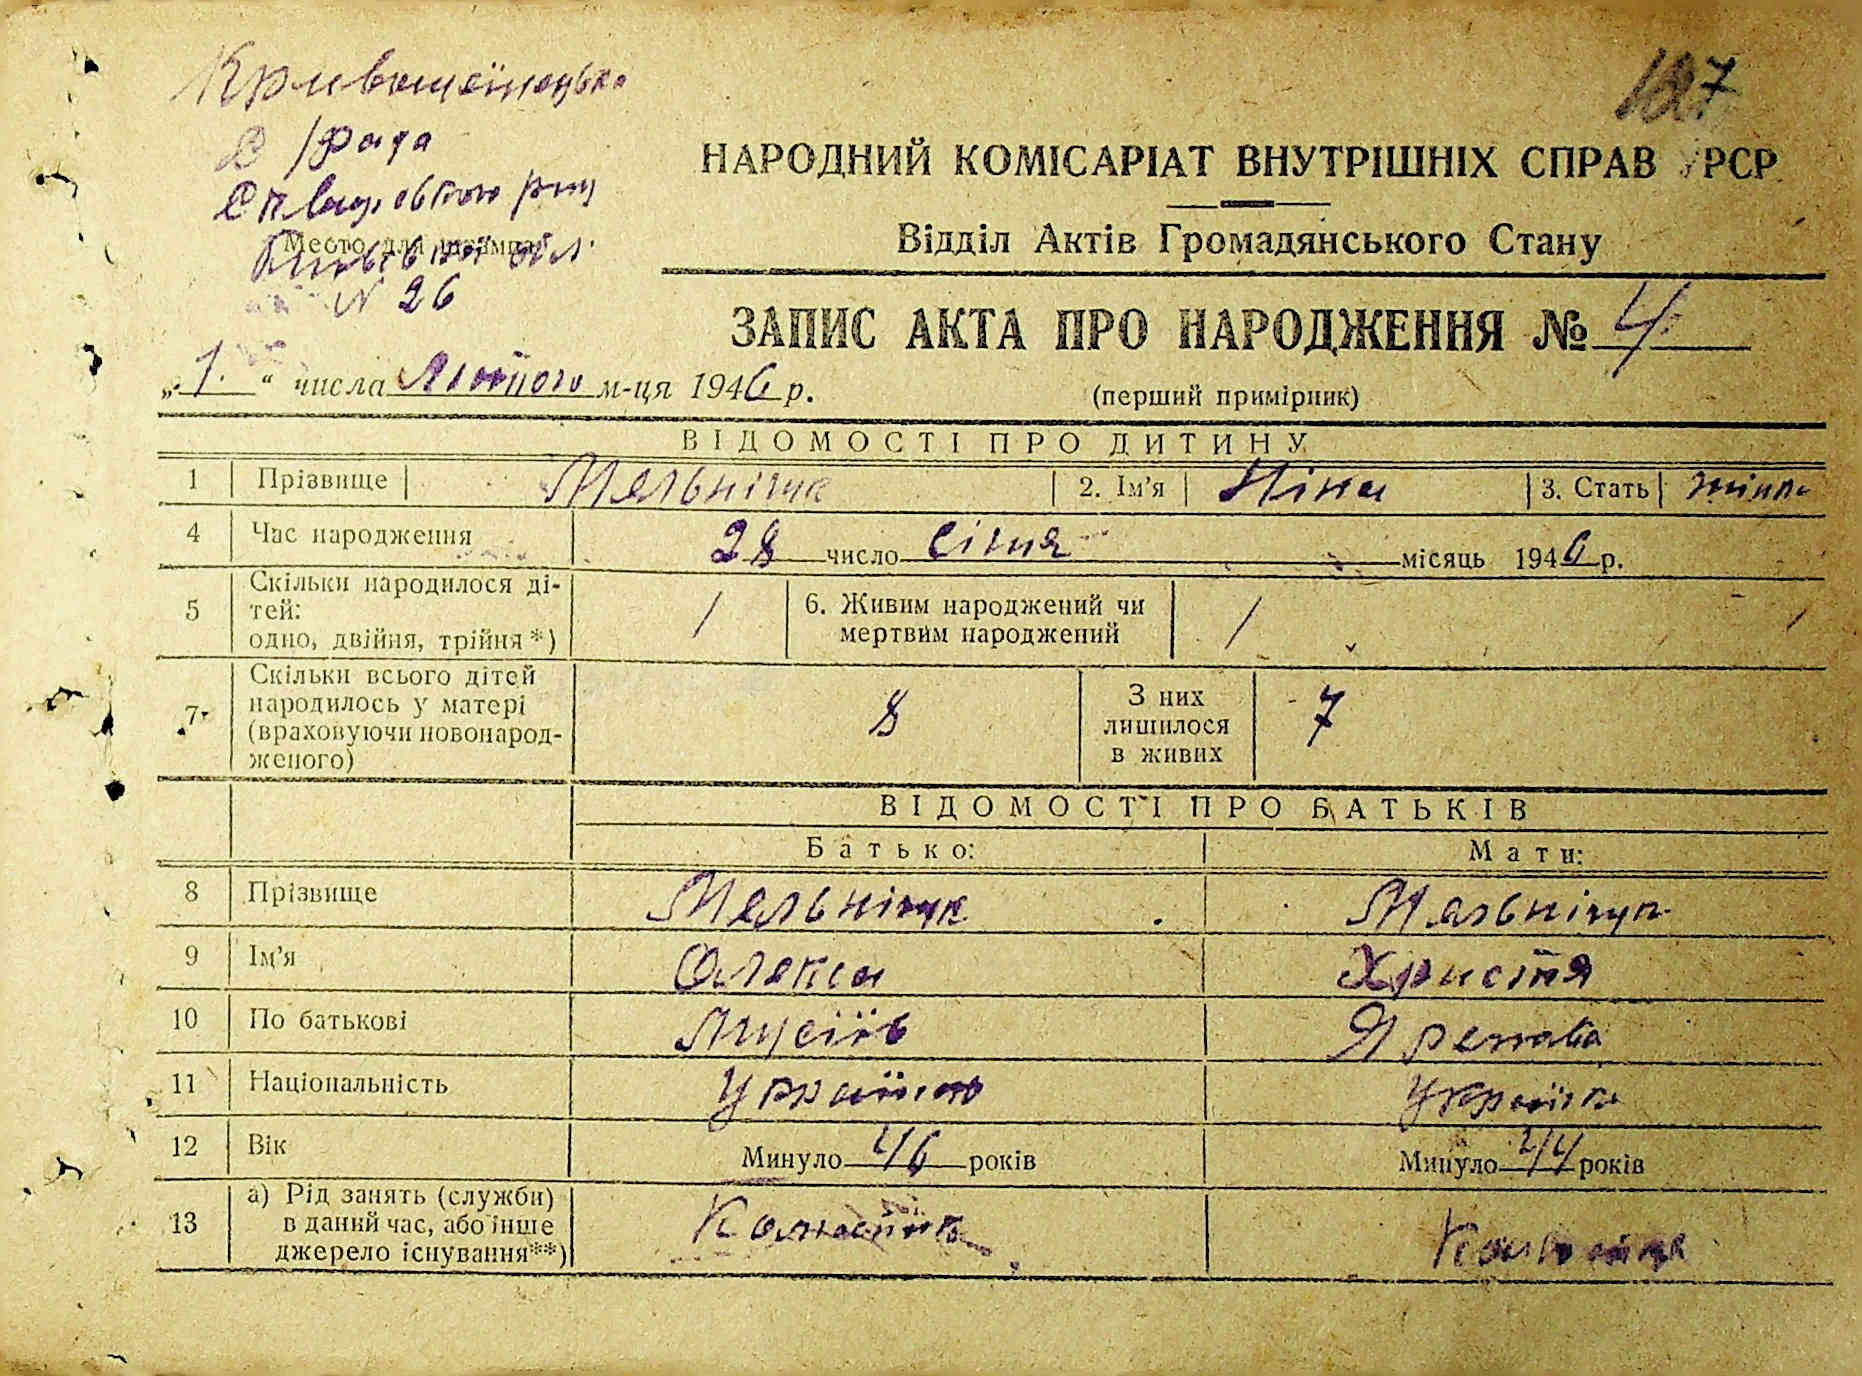 Кривошеїнецька
с/Рада
Сквирського р-ну
Место для штампа
Київської обл.
N 26
127
НАРОДНИЙ КОМІСАРІАТ ВНУТРІШНІХ СПРАВ УРСР
Відділ Актів Громадянського Стану
ЗАПИС АКТА ПРО НАРОДЖЕННЯ № 4
„1.“ числа Лютого м-ця 1946 р.
(перший примірник)
ВІДОМОСТІ ПРО ДИТИНУ
1 Прізвище Мельнічук 2. Ім'я Ніна 3. Стать жіноч
4 Час народження 28 число Січня місяць 1946 р.
5 Скільки народилося ді-
тей:
одно, двійня, трійня *) / 6. Живим народжений чи
мертвим народжений /
7 Скільки всього дітей
народилось у матері
(враховуючи новонарод-
женого) 8 З них
лишилося
в живих 7
ВІДОМОСТІ ПРО БАТЬКІВ
Батько: Мати:
8 Прізвище Мельнічук Мельнічук
9 Ім'я Олекса Христя
10 По батькові Мусіїв
11 Національність Українець Українка
12 Вік Минуло 46 років Минуло 44 років
13 а) Рід занять (служби)
в даний час, або інше
джерело існування**) Колгоспник Колгоспниця